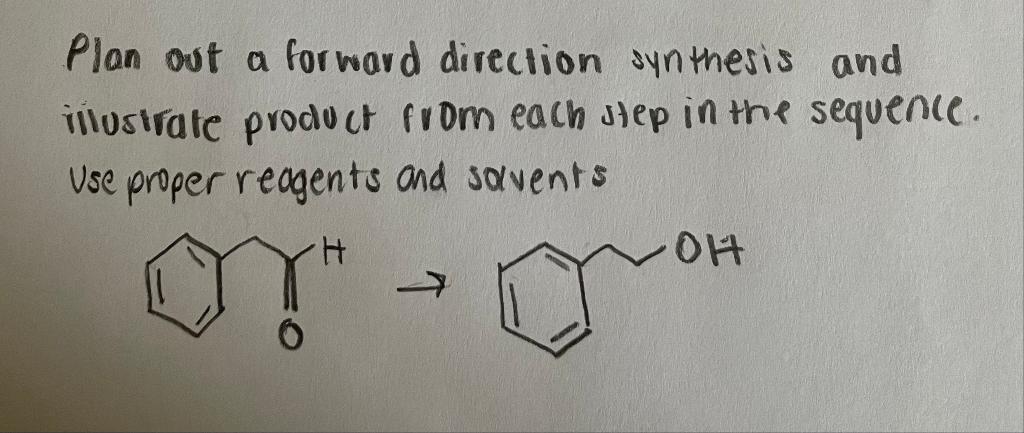 Plan out a forward direction synthesis and
illustrate product from each step in the sequence.
Use proper reagents and solvents
H
OH
O